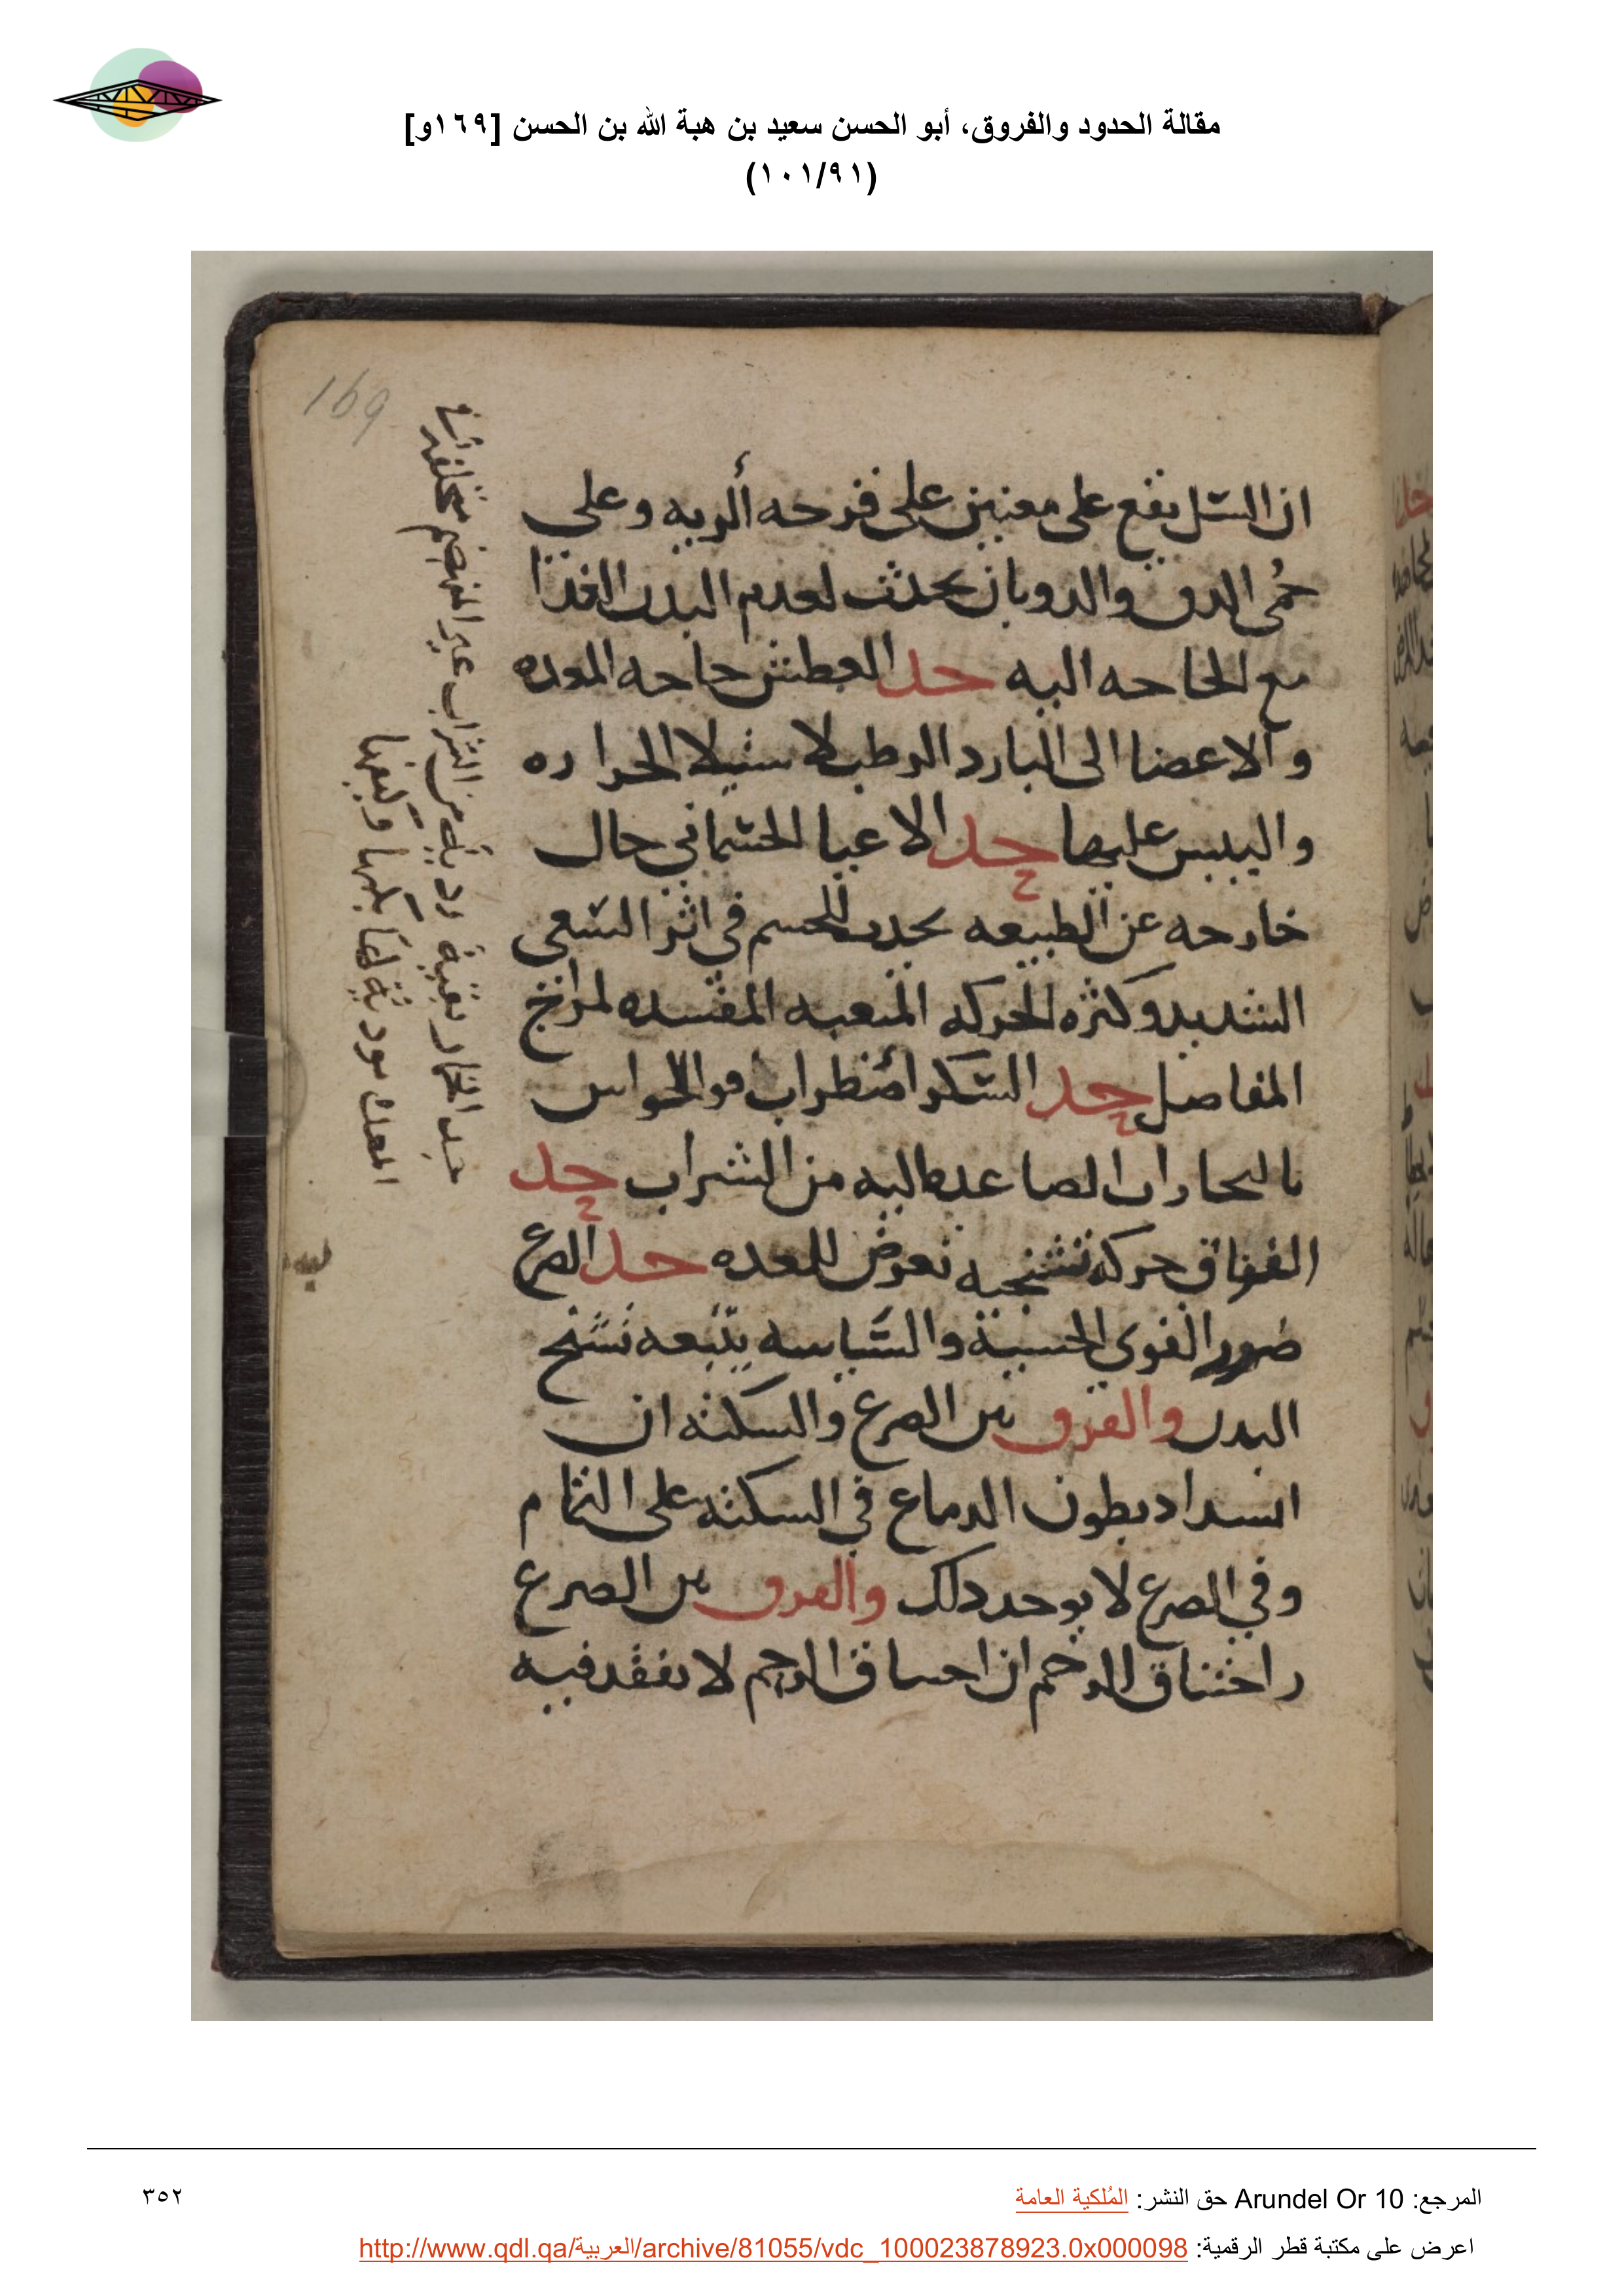 مقالة الحدود والفروق، أبو الحسن سعيد بن هبة الله بن الحسن [١٦٩و]
(١٠١/٩١)
169
ان السل يقع على معنيين على قرحه الريه وعلى
حمى الدق والدوبان يحدث لعدم البدن الغذا
مع الحاجه اليه حد العطش حاجه المعده
والاعضا الى البارد الرطب لاستيلا الحراره
واليبس عليها حد الاعيا الجسماني حال
خارجه عن الطبيعه يحدث للجسم في اثر السعى
الشديد وكثره الحركه المتعبه المفسده لمزاج
المفاصل حد السكر اضطراب قوا الحواس
بالبخارات الصاعده اليه من الشراب حد
الفواق حركه تشنجيه تعرض للمعده حد الصرع
ضرر القوى الحسية والسياسه يتبعه تشنج
البدن والفرق بين الصرع والسكته ان
انسداد بطون الدماغ في السكته على التمام
وفي الصرع لا يوجد ذلك والفرق بين الصرع
واختناق الرحم ان اختناق الرحم لا يفقد فيه
حد الخمار بقية ردية من الشراب غير المنهضم
المرجع: Arundel Or 10 حق النشر: المُلكية العامة
٣٥٢
اعرض على مكتبة قطر الرقمية: http://www.qdl.qa/العربية/archive/81055/vdc_100023878923.0x000098